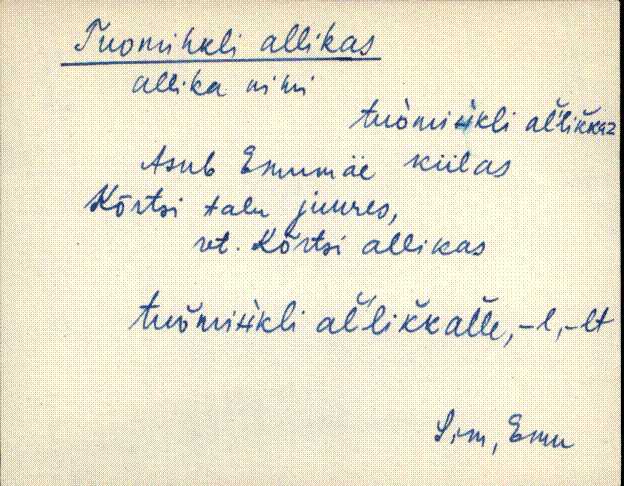 Tuomihkli allikas
allika nimi
tuòmiìkli al̆'lik̆kaz
Asub Emumäe külas
Kõrtsi talu juures,
vt. Kõrtsi allikas
tuòmiìkli al̆'lik̆kal̆le, -l, -lt
Sim, Emu